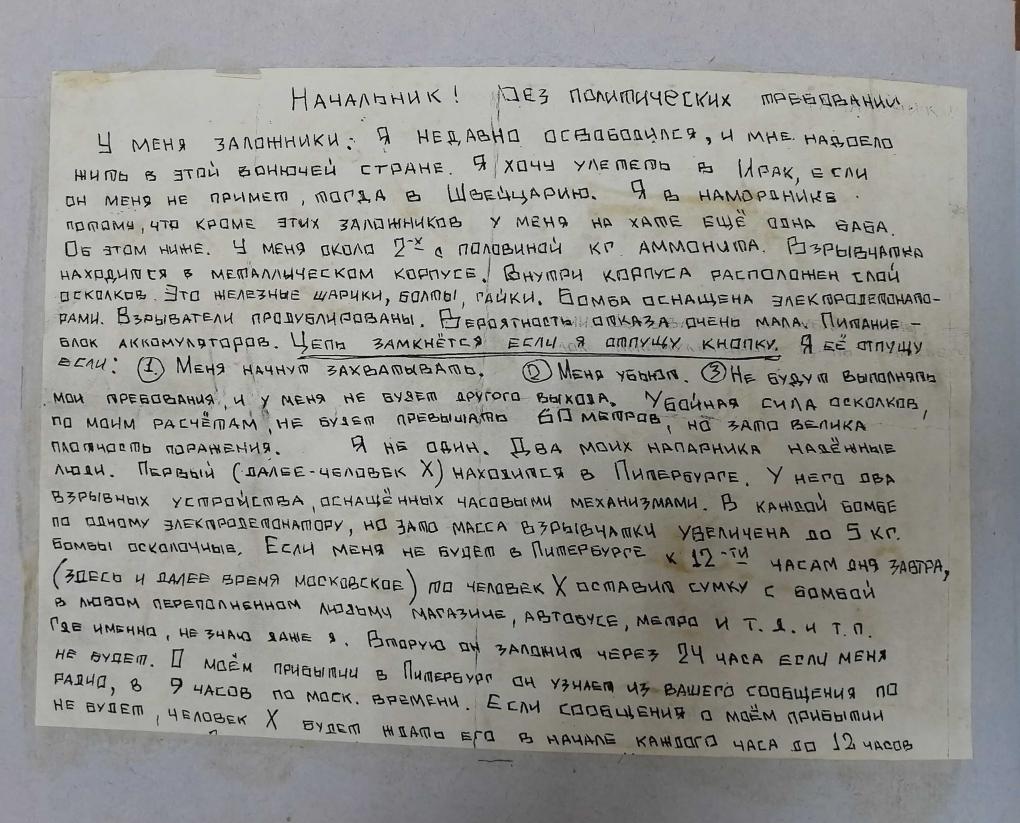 Начальник! Без политических требований.
У меня заложники. Я недавно освободился, и мне надоело
жить в этой вонючей стране. Я хочу улететь в Ирак, если
он меня не примет, тогда в Швейцарию. Я в наморднике
потому, что кроме этих заложников у меня на хате ещё одна баба.
Об этом ниже. У меня около 2-х с половиной кг аммонита. Взрывчатка
находится в металлическом корпусе. Внутри корпуса расположен слой
осколков. Это железные шарики, болты, гайки. Бомба оснащена электродетонато-
рами. Взрыватели продублированы. Вероятность отказа очень мала. Питание –
блок аккомуляторов. Цепь замкнётся если я отпущу кнопку. Я её отпущу
если: 1. Меня начнут захватывать. 2 Меня убьют. 3 Не будут выполнять
мои требования, и у меня не будет другого выхода. Убойная сила осколков,
по моим расчётам, не будет превышать 60 метров, но зато велика
плотность поражения. Я не один. Два моих напарника надёжные
люди. Первый (далее-человек X) находится в Питербурге. У него два
взрывных устройства, оснащённых часовыми механизмами. В каждой бомбе
по одному электродетонатору, но зато масса взрывчатки увеличена до 5 кг.
Бомбы осколочные. Если меня не будет в Питербурге к 12-ти часам дня завтра,
(здесь и далее время московское) то человек X оставит сумку с бомбой
в любом переполненном людьми магазине, автобусе, метро и т.д. и т.п.
Где именно, не знаю даже я. Вторую он заложит через 24 часа если меня
не будет. О моём прибытии в Питербург он узнает из вашего сообщения по
радио, в 9 часов по моск. времени. Если сообщения о моём прибытии
не будет, человек X будет ждать его в начале каждого часа до 12 часов